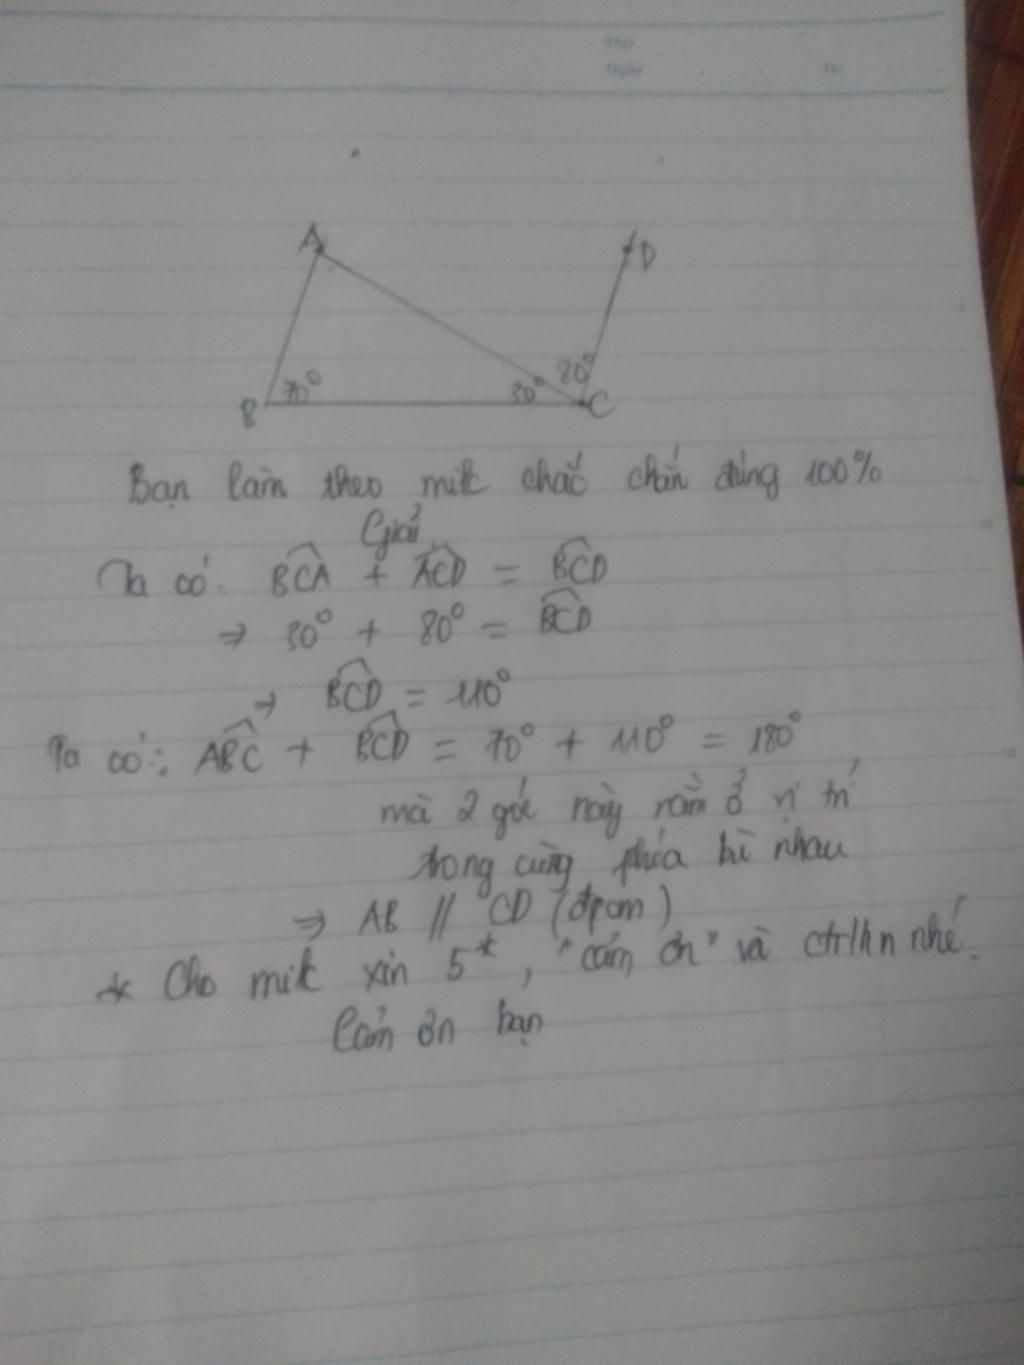 Thứ
Ngày No
A D
80°
70° 30°
B C
Bạn làm theo mik chắc chắn đúng 100%
Giải
Ta có: BCA + ACD = BCD
⇒ 30° + 80° = BCD
→ BCD = 110°
Ta có: ABC + BCD = 70° + 110° = 180°
mà 2 góc này nằm ở vị trí
trong cùng phía bù nhau
⇒ AB // CD (đpcm)
* Cho mik xin 5*, "cám ơn" và ctrlhn nhé.
Cảm ơn bạn